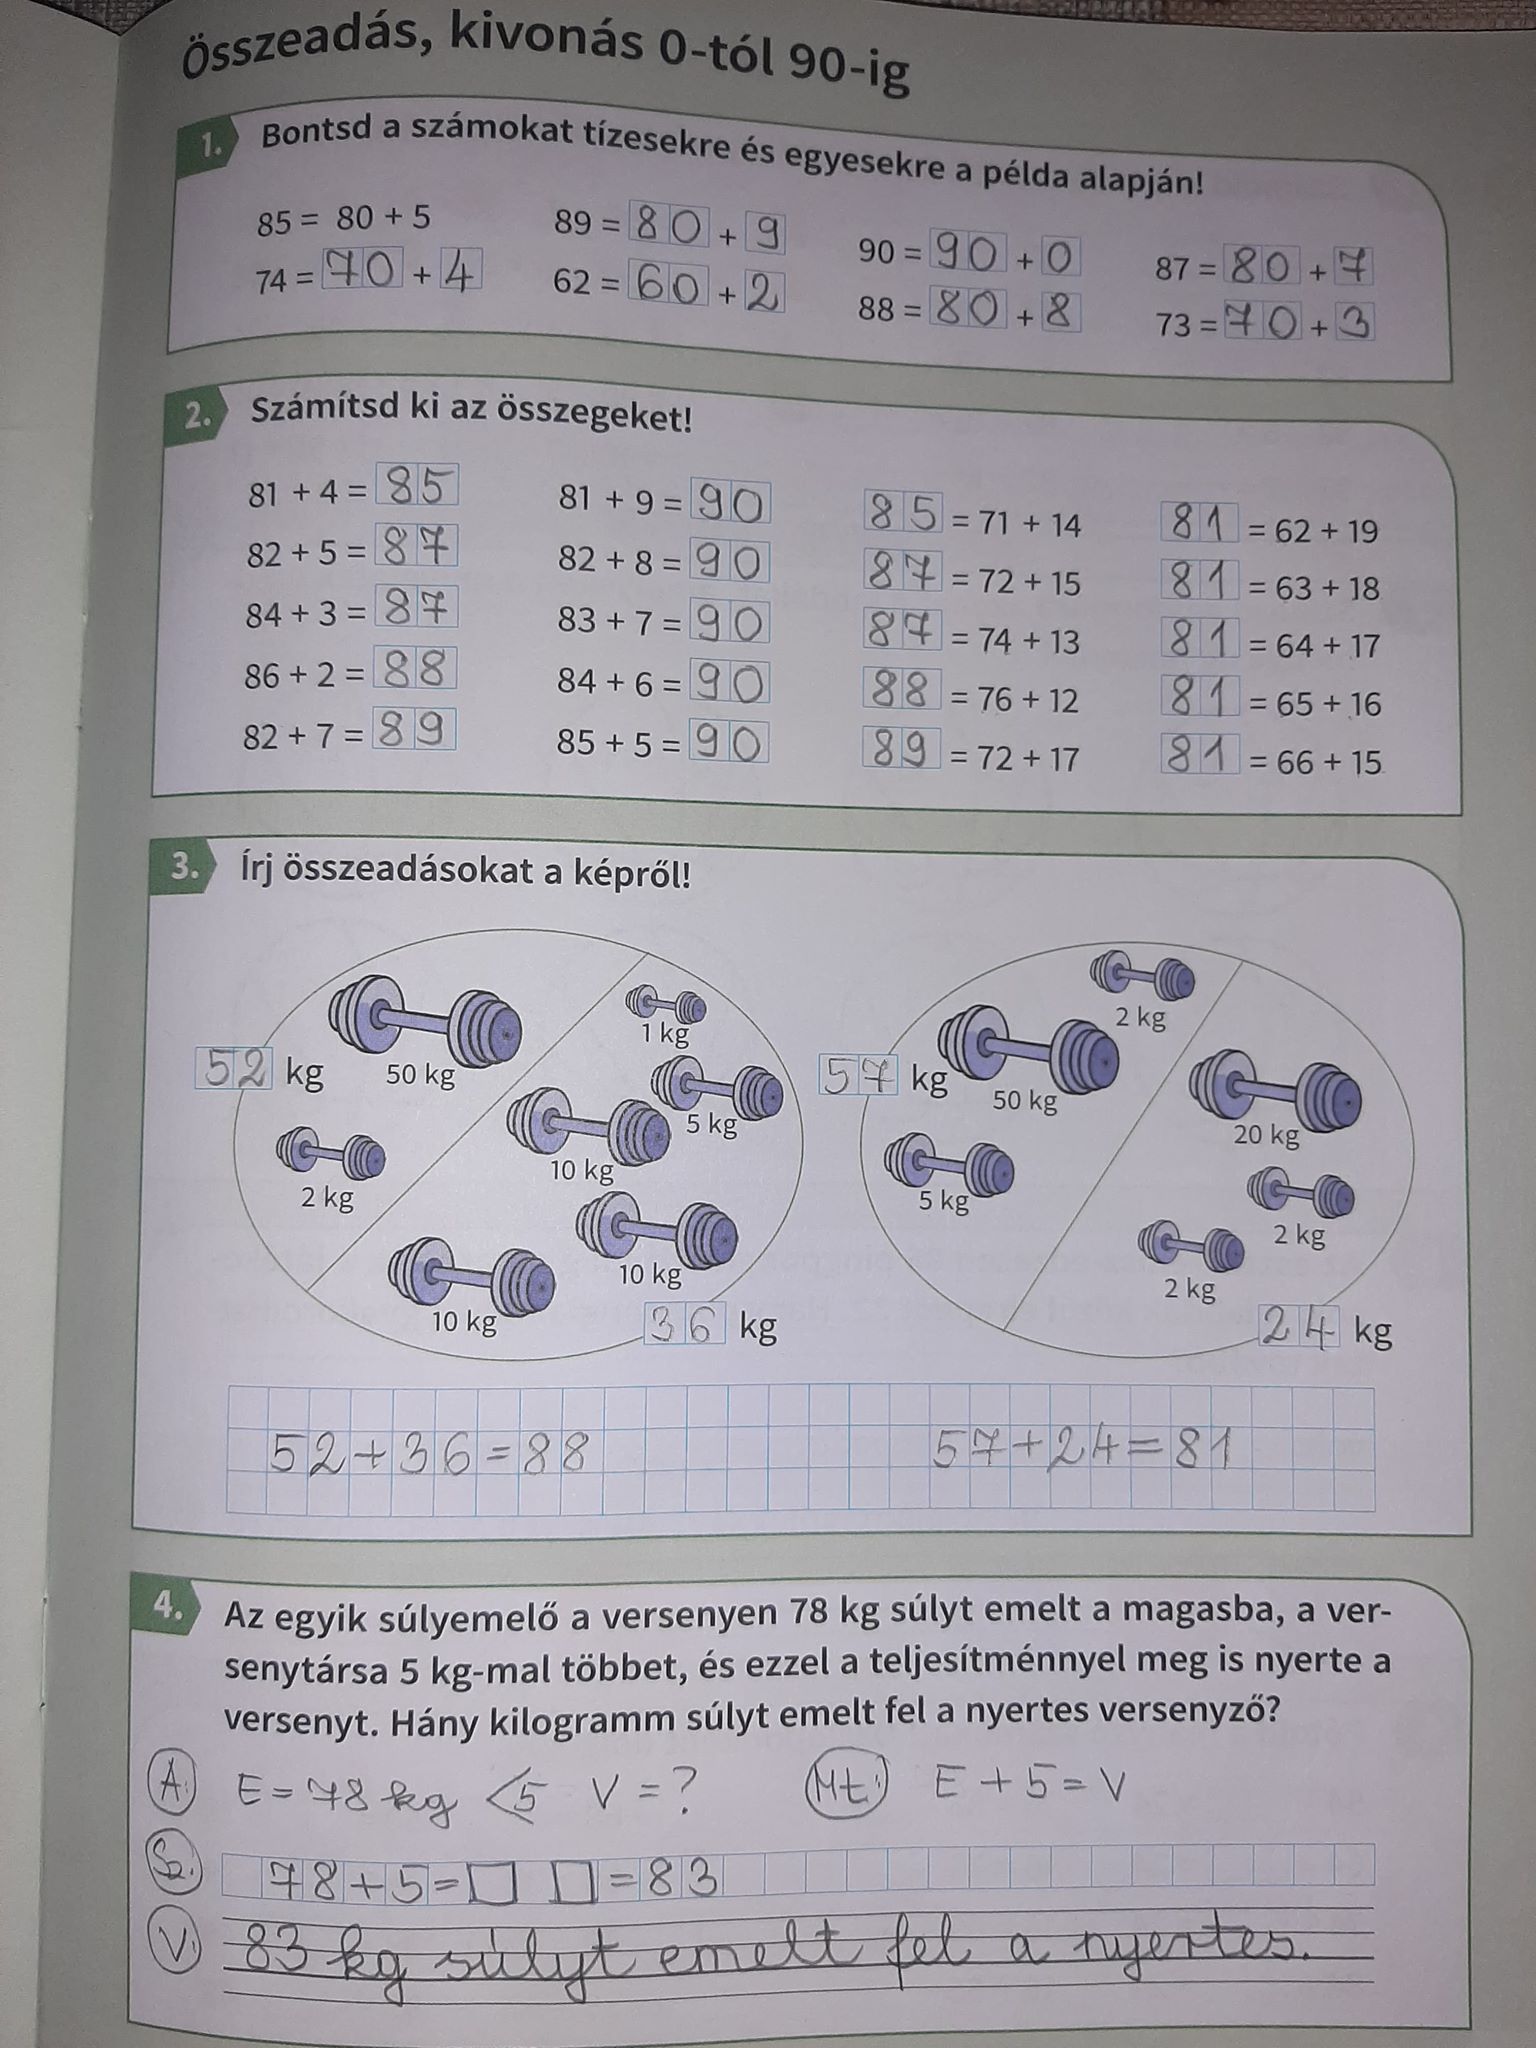 Összeadás, kivonás 0-tól 90-ig
1. Bontsd a számokat tízesekre és egyesekre a példa alapján!
85 = 80 + 5 89 = 80 + 9 90 = 90 + 0 87 = 80 + 7
74 = 70 + 4 62 = 60 + 2 88 = 80 + 8 73 = 70 + 3
2. Számítsd ki az összegeket!
81 + 4 = 85 81 + 9 = 90 85 = 71 + 14 81 = 62 + 19
82 + 5 = 87 82 + 8 = 90 87 = 72 + 15 81 = 63 + 18
84 + 3 = 87 83 + 7 = 90 87 = 74 + 13 81 = 64 + 17
86 + 2 = 88 84 + 6 = 90 88 = 76 + 12 81 = 65 + 16
82 + 7 = 89 85 + 5 = 90 89 = 72 + 17 81 = 66 + 15
3. Írj összeadásokat a képről!
52 kg
50 kg
2 kg
1 kg
5 kg
10 kg
10 kg
10 kg
36 kg
57 kg
2 kg
50 kg
5 kg
20 kg
2 kg
2 kg
24 kg
52+36=88 57+24=81
4. Az egyik súlyemelő a versenyen 78 kg súlyt emelt a magasba, a ver-
senytársa 5 kg-mal többet, és ezzel a teljesítménnyel meg is nyerte a
versenyt. Hány kilogramm súlyt emelt fel a nyertes versenyző?
A: E = 78 kg <5 V = ? Mt: E + 5 = V
Sz. 78+5=□ □=83
V: 83 kg súlyt emelt fel a nyertes.